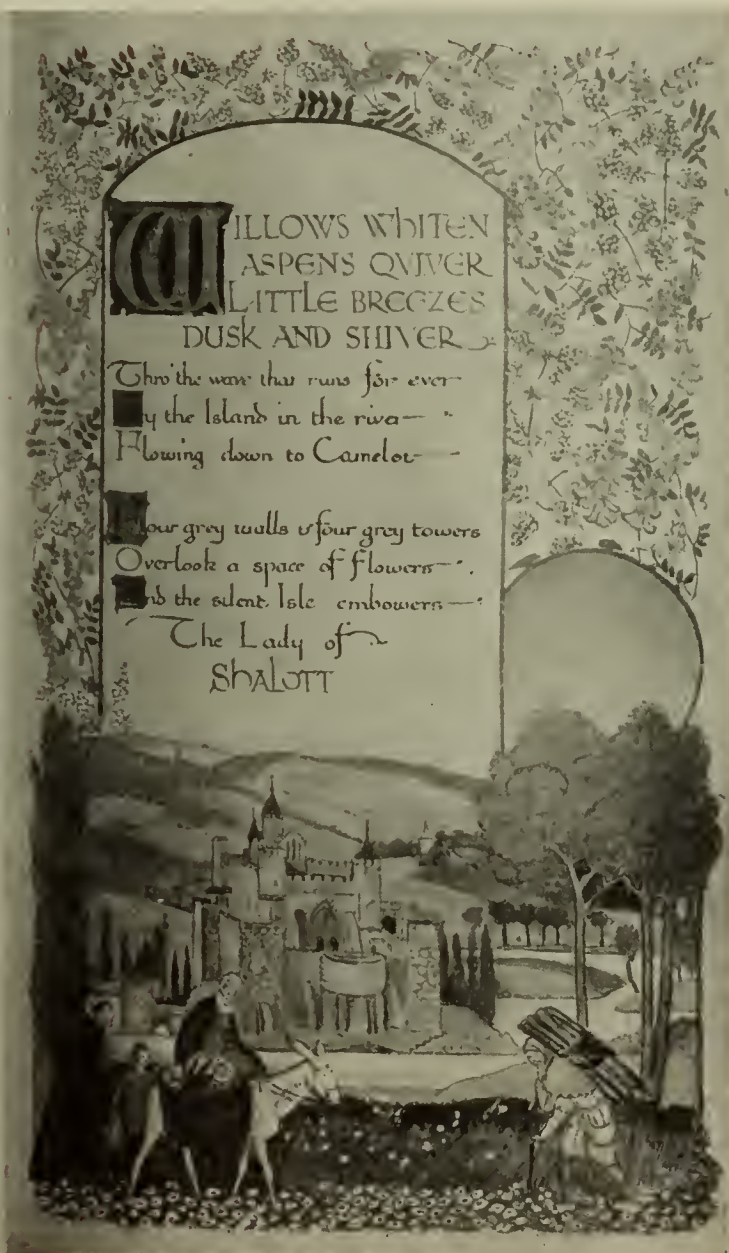 WILLOWS WHITEN
ASPENS QVIVER
LITTLE BREEZES
DUSK AND SHIVER
Thro' the wave that runs for ever
By the Island in the river
Flowing down to Camelot
Four grey walls & four grey towers
Overlook a space of flowers
And the silent Isle embowers
The Lady of
Shalott